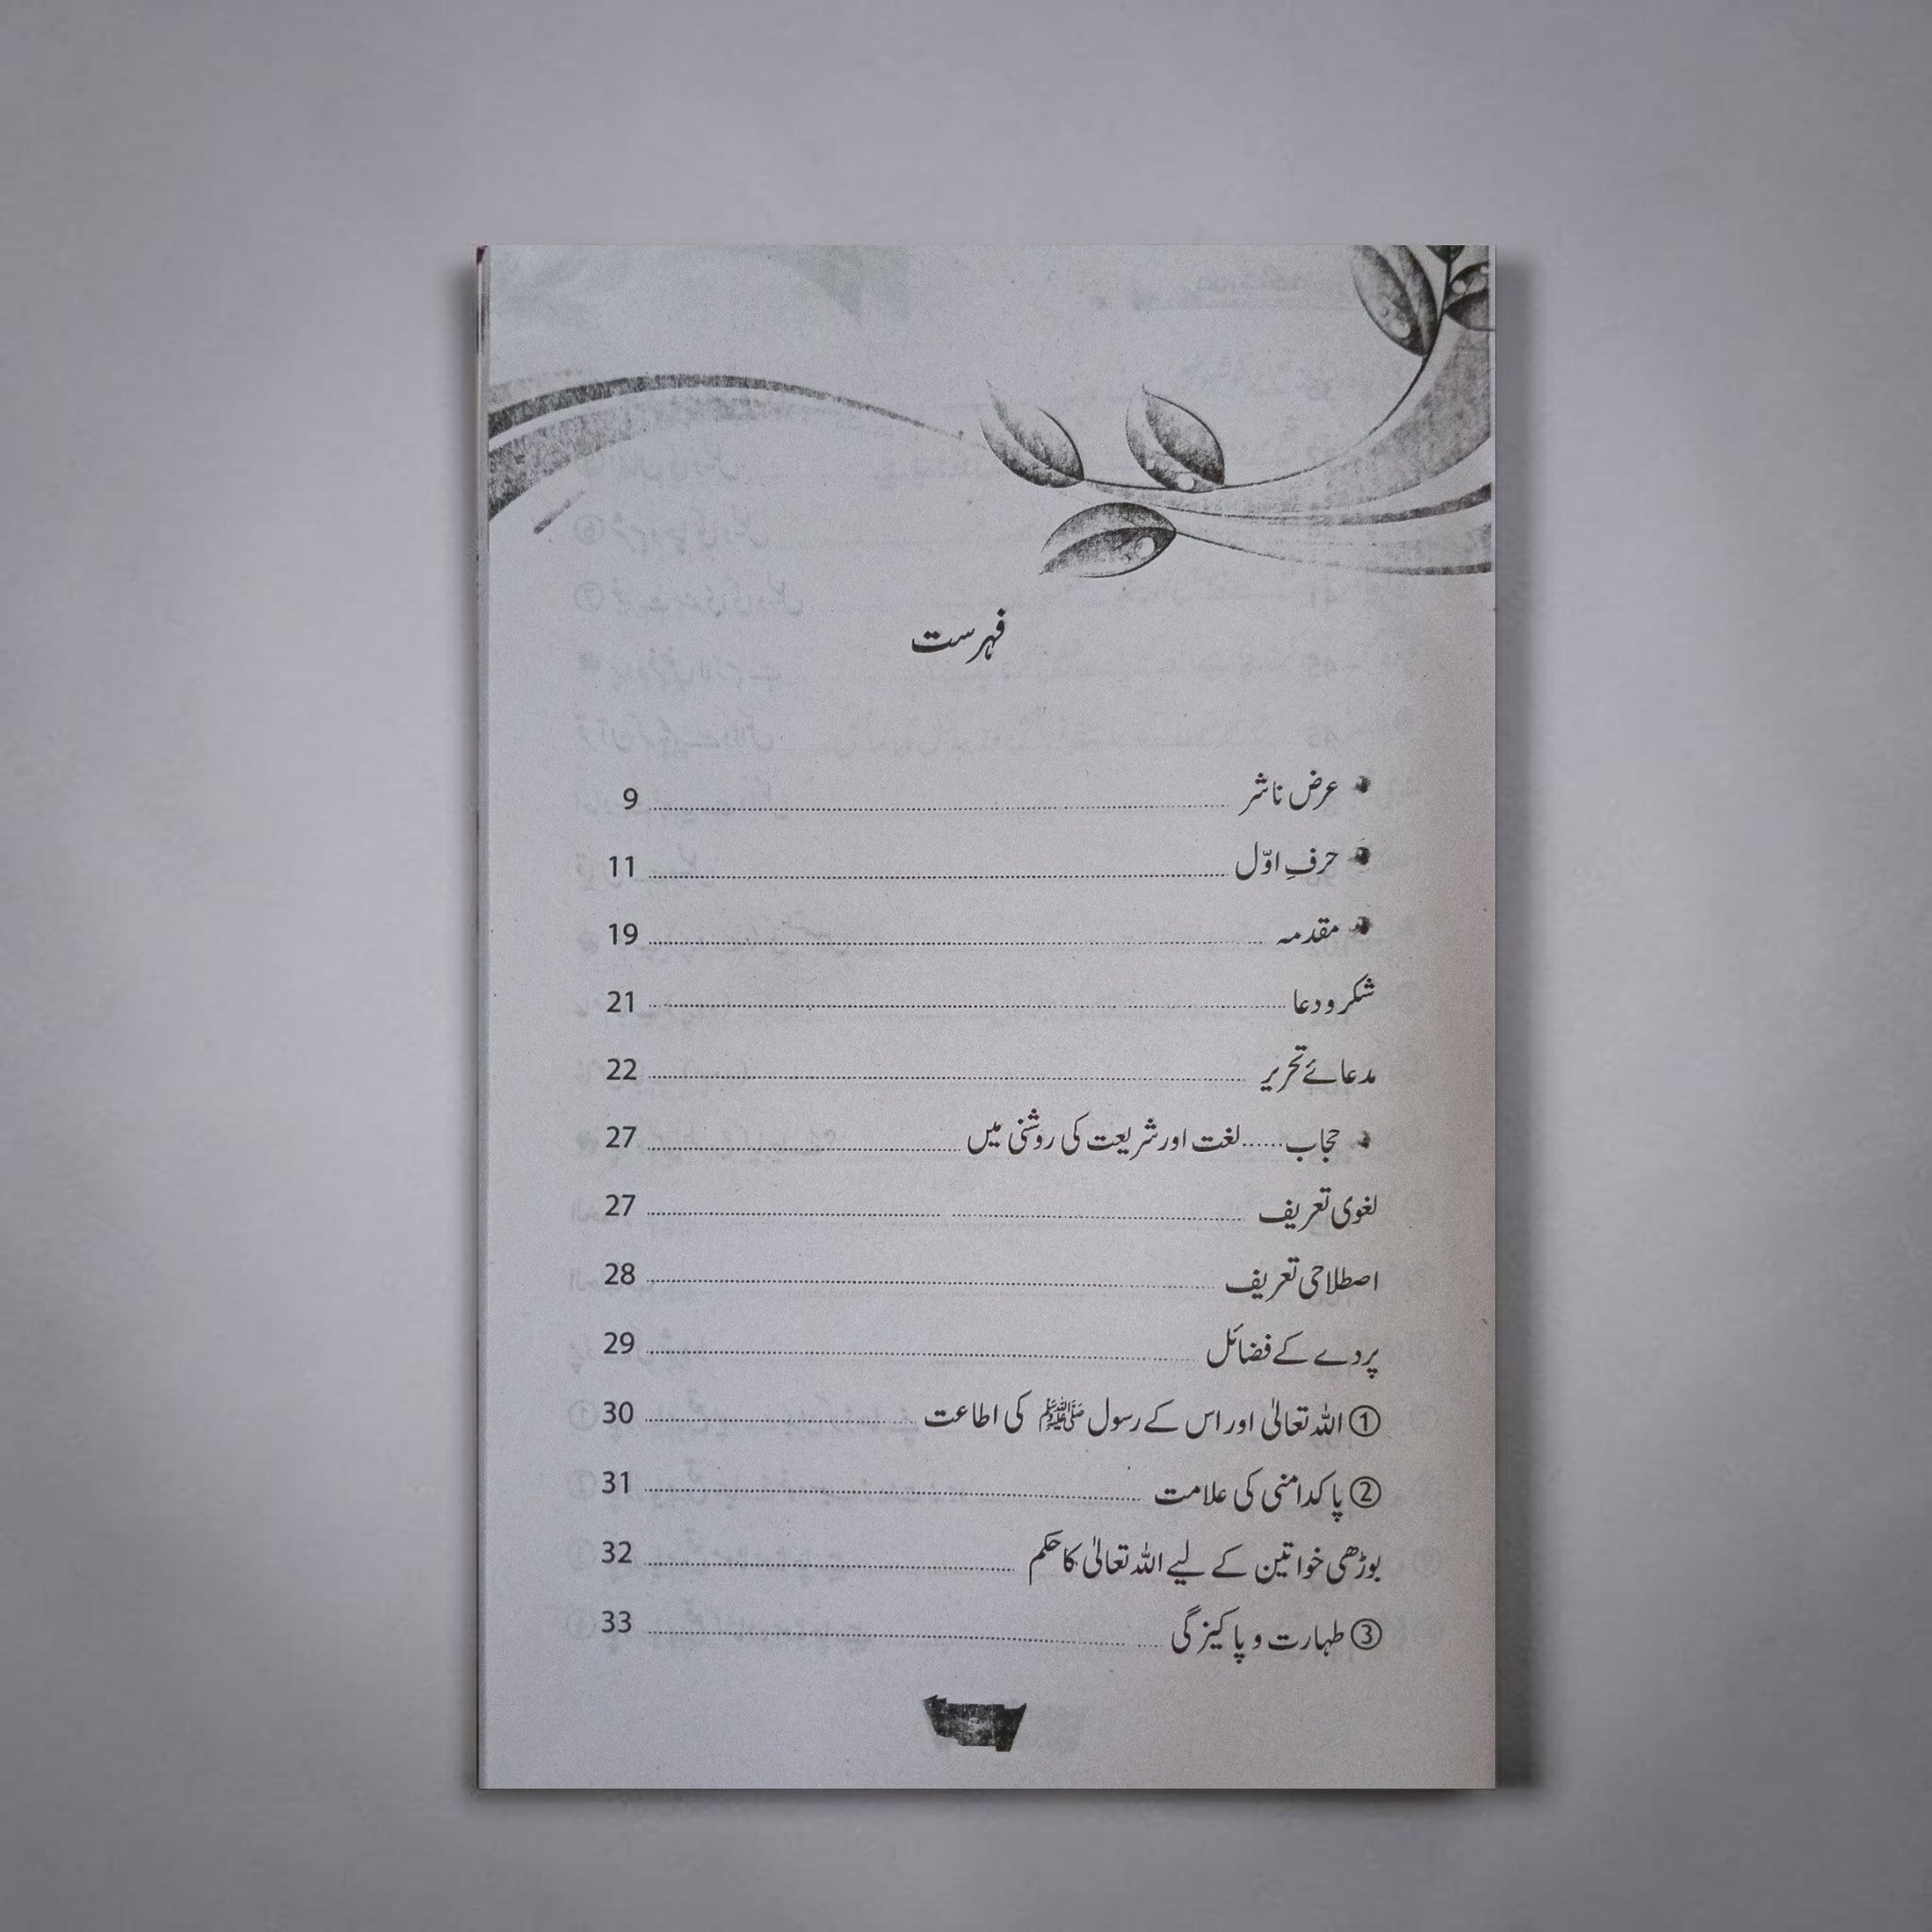 فہرست
• عرض ناشر ........ 9
• حرفِ اوّل ........ 11
• مقدمہ ........ 19
شکر و دعا ........ 21
مدعائے تحریر ........ 22
• حجاب...... لغت اور شریعت کی روشنی میں ........ 27
لغوی تعریف ........ 27
اصطلاحی تعریف ........ 28
پردے کے فضائل ........ 29
① اللہ تعالیٰ اور اس کے رسول ﷺ کی اطاعت ........ 30
② پاکدامنی کی علامت ........ 31
بوڑھی خواتین کے لیے اللہ تعالیٰ کا حکم ........ 32
③ طہارت و پاکیزگی ........ 33